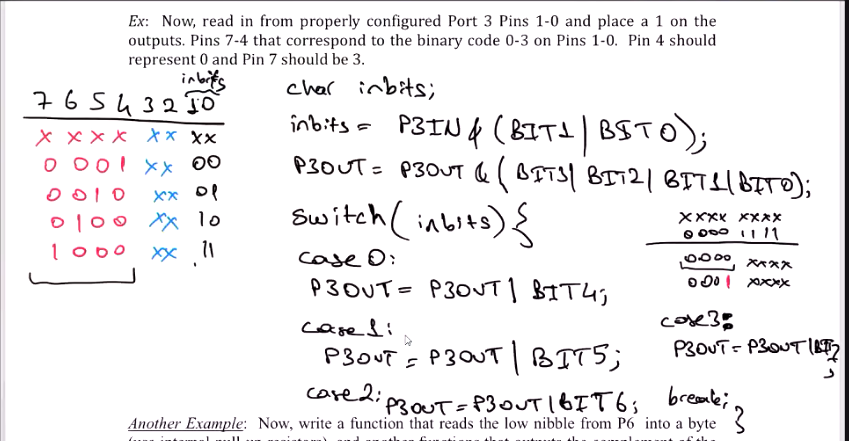 Ex: Now, read in from properly configured Port 3 Pins 1-0 and place a 1 on the
outputs. Pins 7-4 that correspond to the binary code 0-3 on Pins 1-0. Pin 4 should
represent 0 and Pin 7 should be 3.
inbits
7 6 5 4 3 2 1 0
x x x x x x x x
0 0 0 1 x x 0 0
0 0 1 0 x x 0 1
0 1 0 0 x x 1 0
1 0 0 0 x x 1 1
char inbits;
inbits = P3IN & (BIT1 | BIT0);
P3OUT = P3OUT & (BIT3 | BIT2 | BIT1 | BIT0);
switch (inbits) {
case 0:
P3OUT = P3OUT | BIT4;
case 1:
P3OUT = P3OUT | BIT5;
case 2: P3OUT = P3OUT | BIT6;
xxxx xxxx
0000 1111
0000 xxxx
0001 xxxx
case 3:
P3OUT = P3OUT | BIT7
;
break;
}
Another Example: Now, write a function that reads the low nibble from P6 into a byte